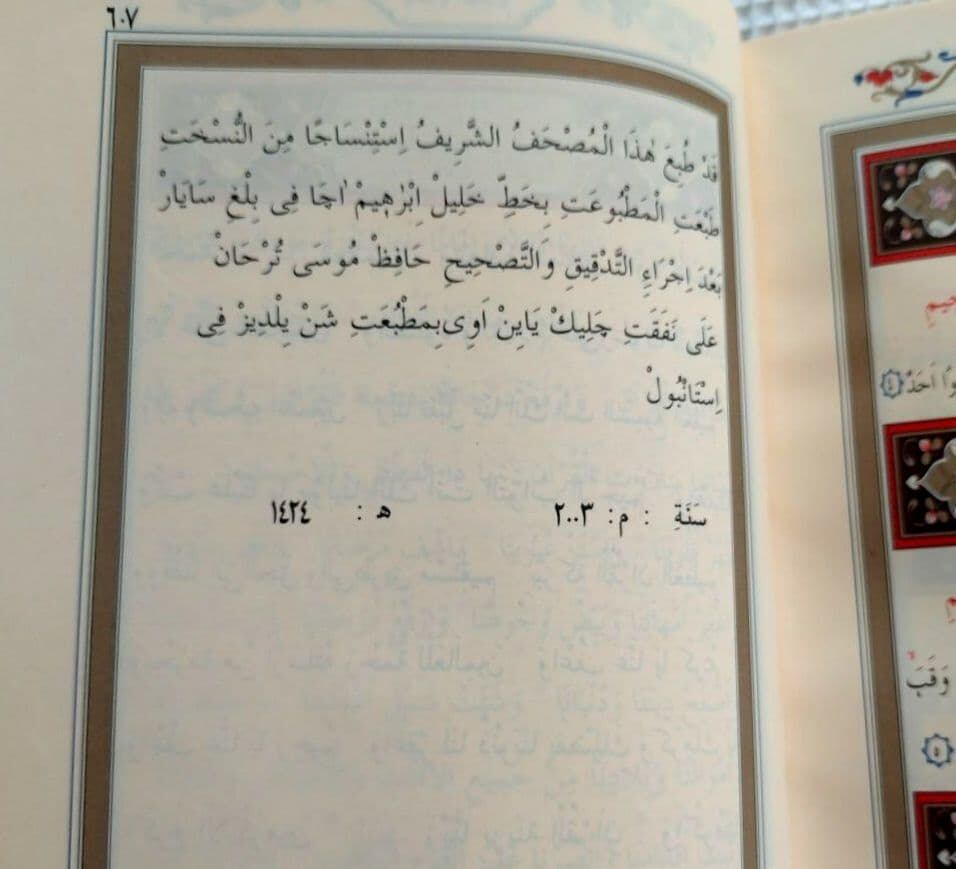 ٦٠٧
قَدْ طُبِعَ هٰذَا الْمُصْحَفُ الشَّرِيفُ اِسْتِنْسَاجًا مِنَ النُّسْخَتِ
طَبْعَتِ الْمَطْبُوعَتِ بِخَطِّ خَلِيلْ اِبْرٰهِيمْ اٰچَا فِى بِلْغِ سَايَارْ
بَعْدَ اِجْرَاءِ التَّدْقِيقِ وَالتَّصْحِيحِ حَافِظْ مُوسَى تُرْحَانْ
عَلَى نَفَقَتِ چَلِيكْ يَايِنْ اَوِى بِمَطْبُعَتِ شَنْ يِلْدِيزْ فِى
اِسْتَانْبُولْ
سَنَةِ : م: ٢٠٠٣ ه : ١٤٢٤
اَحَدٌ ٤
وَقَبَ
٥